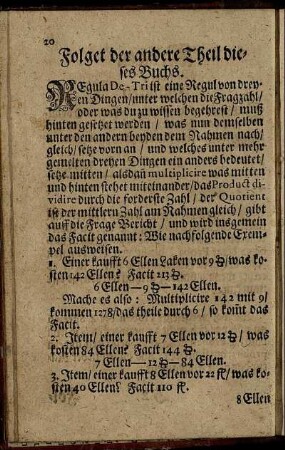 20
Folget der andere Theil die-
ses Buchs.
REgula De-Tri ist eine Regul von drey-
en Dingen/unter welchen die Fragzahl/
oder was du zu wissen begehrest/ muß
hinten gesetzet werden / was nun demselben
unter den andern beyden dem Nahmen nach/
gleich/setze vorn an / und welches unter mehr
gemelten dreyen Dingen ein anders bedeutet/
setze mitten / alsdañ multiplicire was mitten
und hinten stehet miteinander/das Product di-
vidire durch die forderste Zahl / der Quotient
ist der mittlern Zahl am Nahmen gleich / gibt
auff die Frage Bericht / und wird insgemein
das Facit genannt: Wie nachfolgende Exem-
pel ausweisen.
1. Einer kaufft 6 Ellen Laken vor 9 / was ko-
sten 142 Ellen? Facit 213
6 Ellen—9—142 Ellen.
Mache es also: Multiplicire 142 mit 9/
kommen 1278/das theile durch 6 / so kom̃t das
Facit.
2. Item/ einer kaufft 7 Ellen vor 12 / was
kosten 84 Ellen? Facit 144
7 Ellen—12—84 Ellen.
3. Item/ einer kaufft 8 Ellen vor 22 / was ko-
sten 40 Ellen? Facit 110
8 Ellen